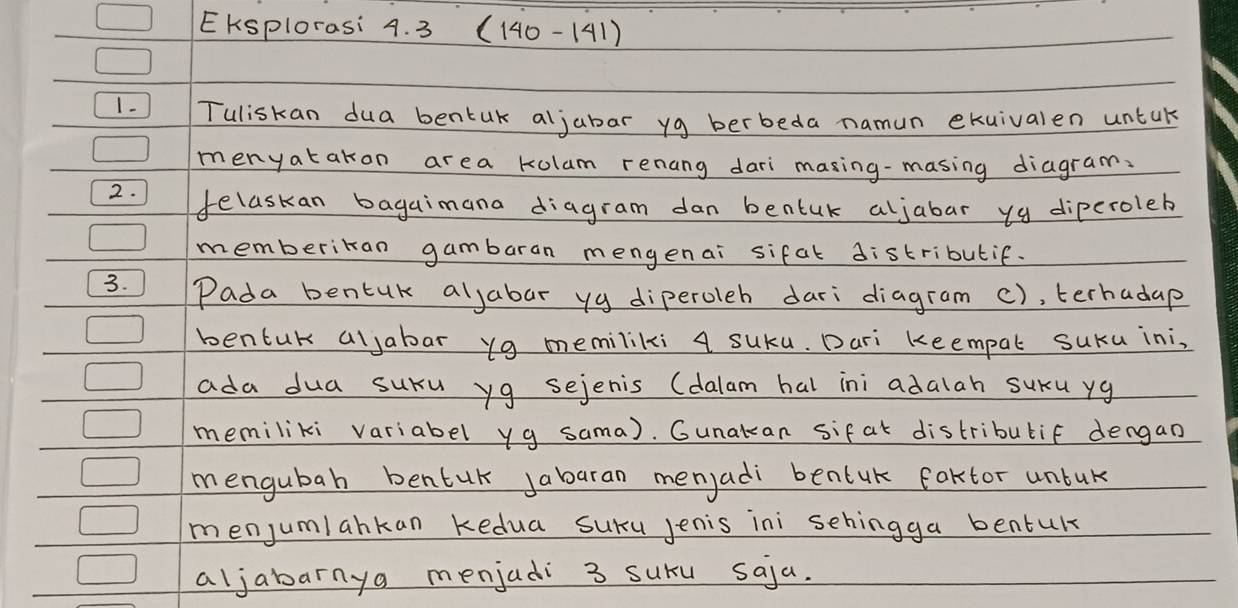 Eksplorasi 4.3 (140-141)
1. Tuliskan dua bentuk aljabar yg berbeda namun ekuivalen untuk
menyatakan area kolam renang dari masing-masing diagram.
2. Jelaskan bagaimana diagram dan bentuk aljabar yg diperoleh
memberikan gambaran mengenai sifat distributif.
3. Pada bentuk aljabar yg diperoleh dari diagram c), terhadap
bentuk aljabar yg memiliki 4 suku. Dari keempat suku ini,
ada dua suku yg sejenis (dalam hal ini adalah suku yg
memiliki variabel yg sama). Gunakan sifat distributif dengan
mengubah bentuk jabaran menjadi bentuk faktor untuk
menjumlahkan kedua suku jenis ini sehingga bentuk
aljabarnya menjadi 3 suku saja.